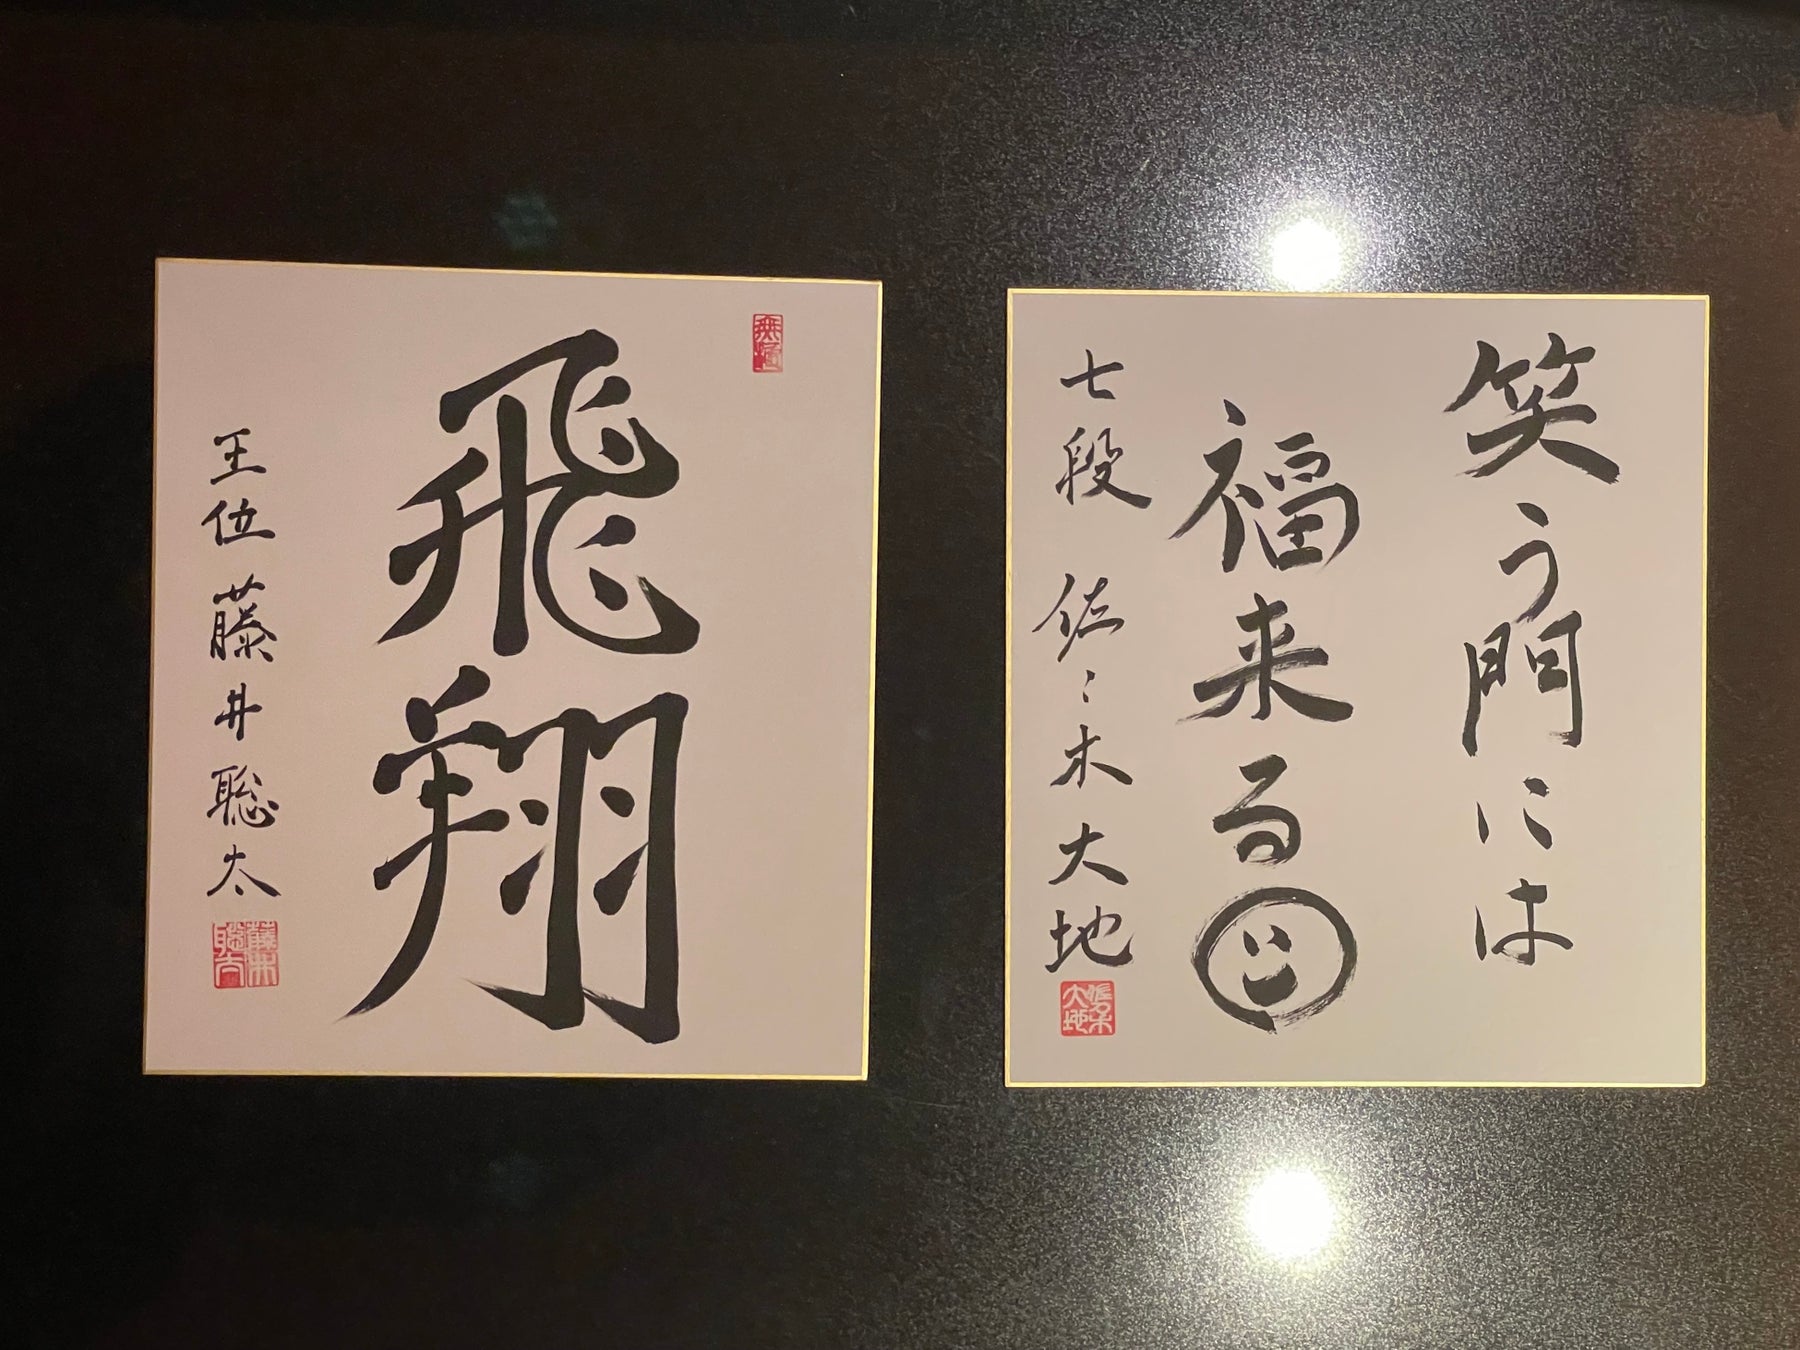 飛翔
王位 藤井聡太
藤井
聡太
笑う門には
福来る
七段 佐々木大地
佐々木
大地